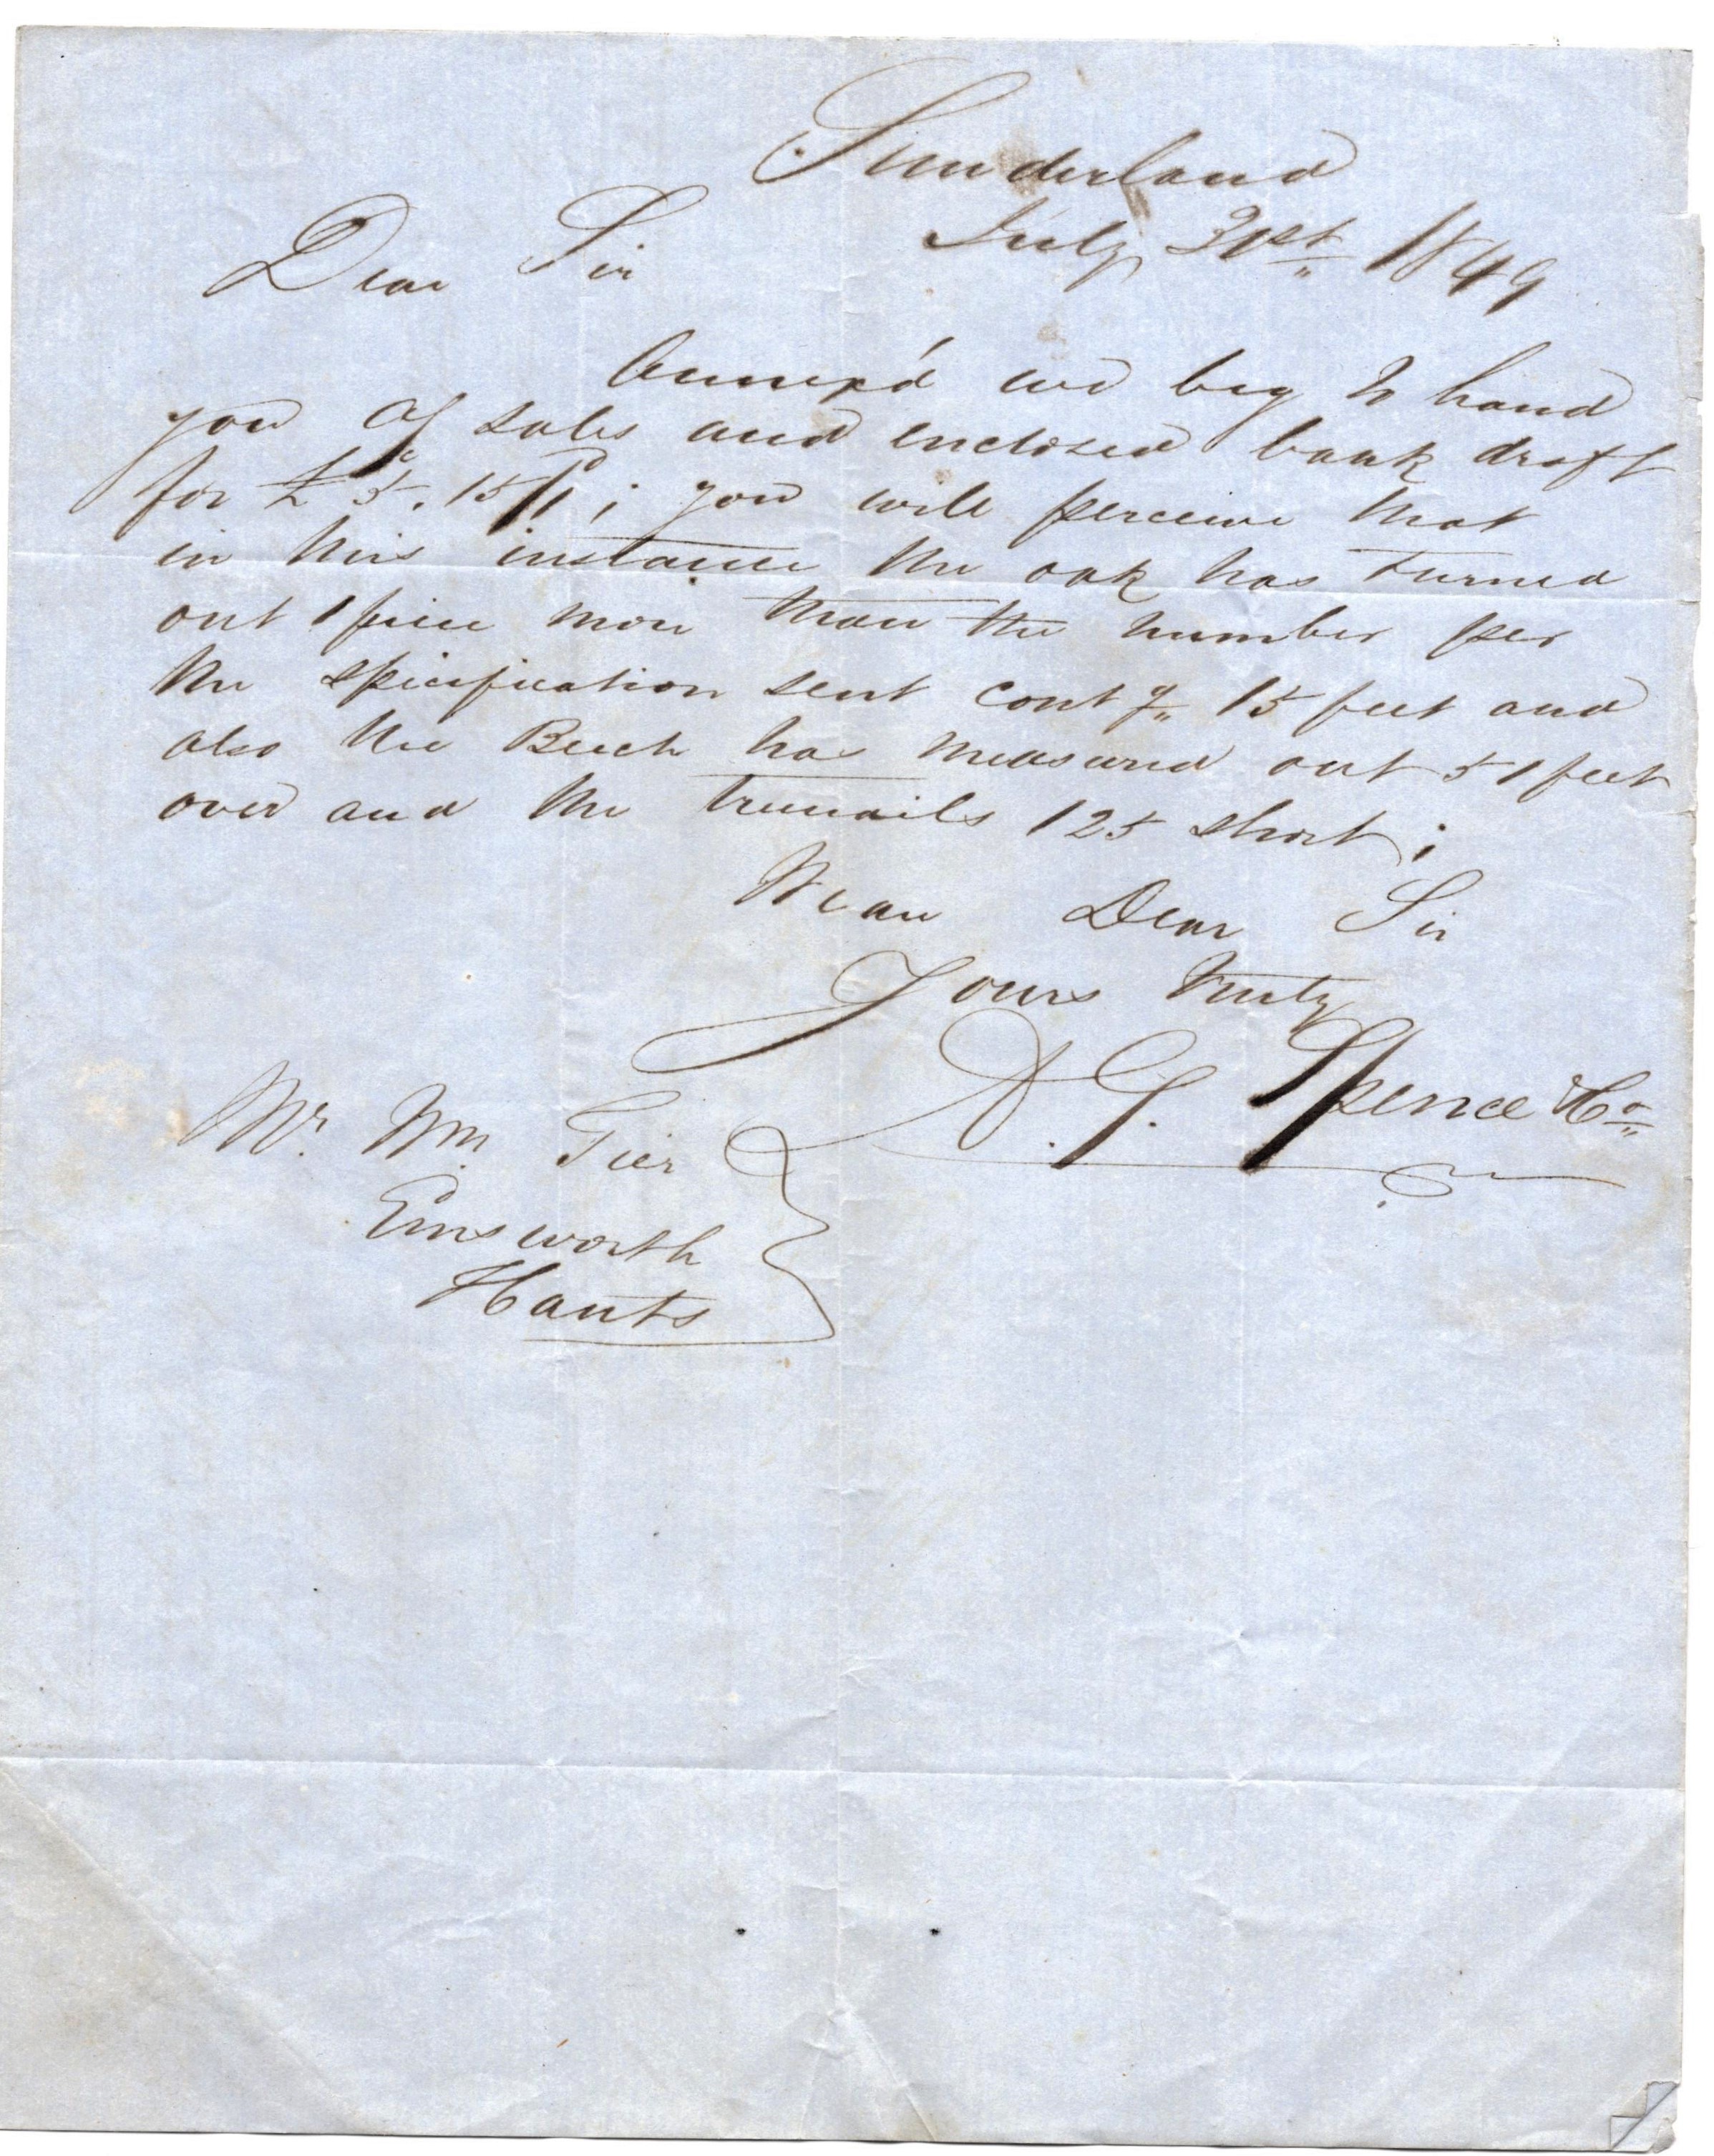 Sunderland
July 31st 1849
Dear Sir
Annex'd we beg to hand
you a/c sales and enclosed bank draft
for £5.15/1; you will perceive that
in this instance the oak has turned
out 1 piece more than the number per
the specification sent contg 15 feet and
also the Beech has measured out 51 feet
over and the treenails 125 short;
We are Dear Sir
Yours truly
J. Spence & Co
Mr. Wm Tier
Emsworth
Hants